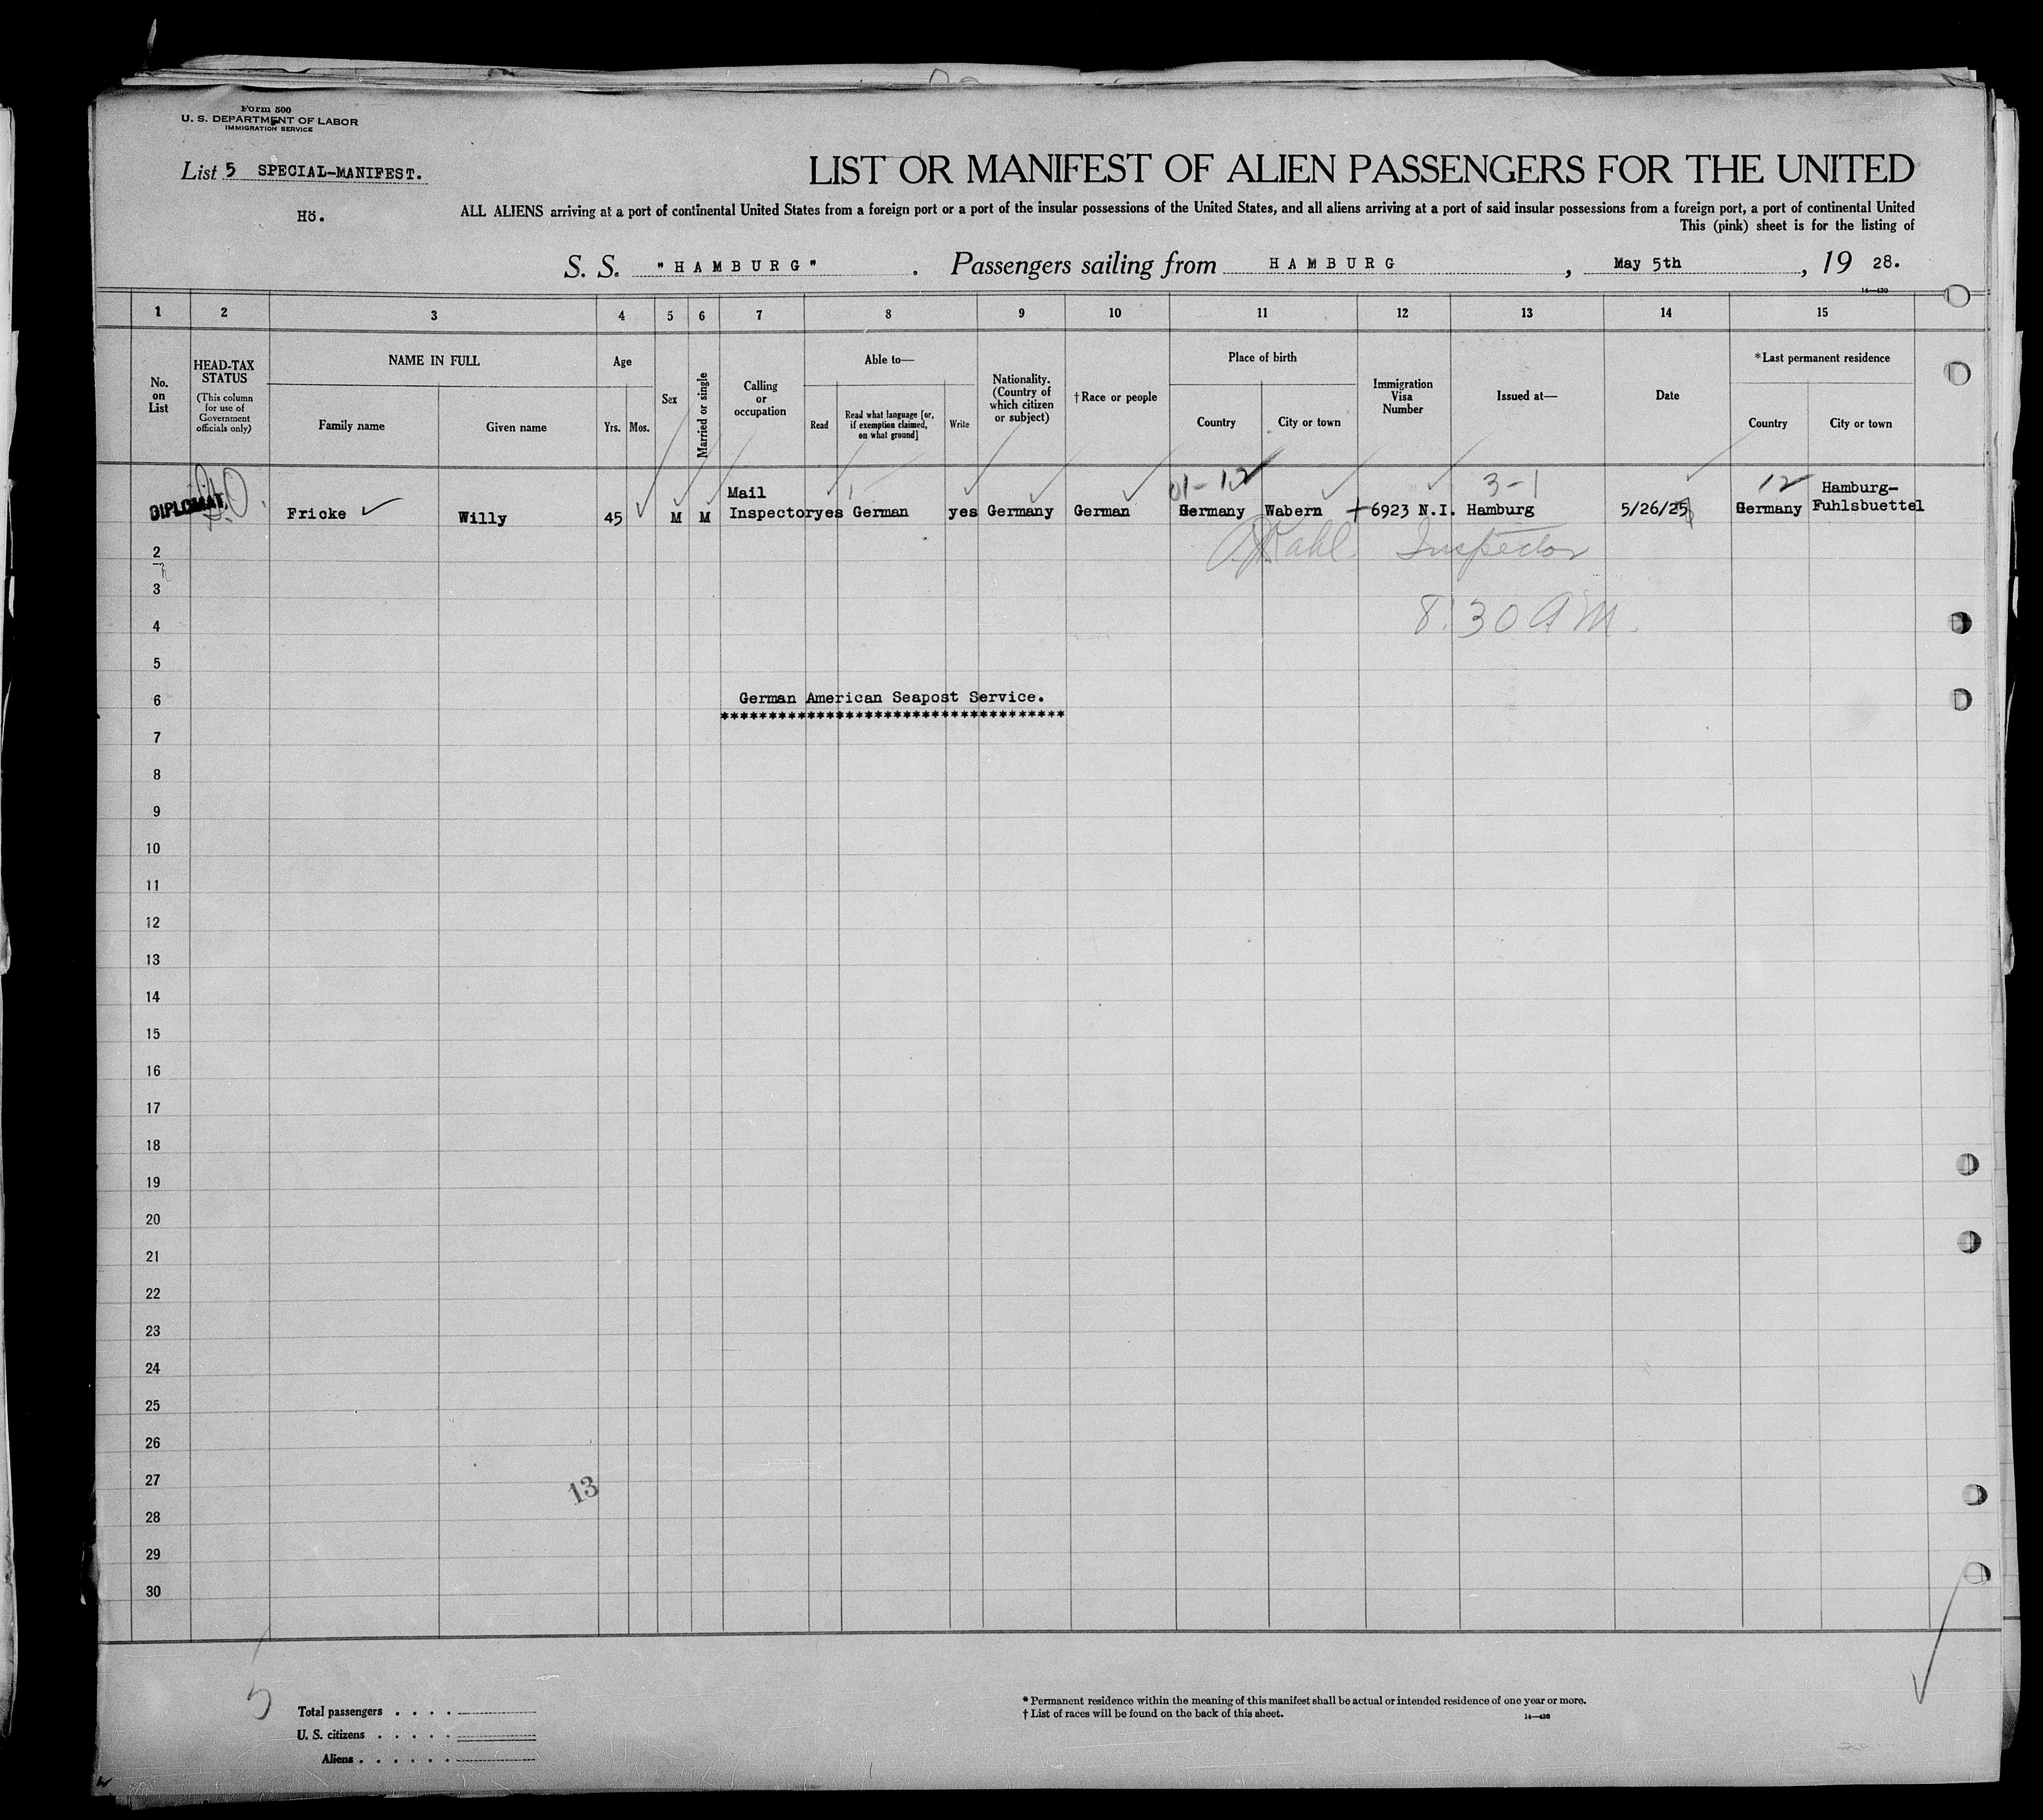 Form 500
U. S. DEPARTMENT OF LABOR
IMMIGRATION SERVICE
List 5 SPECIAL-MANIFEST.
Hö.
LIST OR MANIFEST OF ALIEN PASSENGERS FOR THE UNITED
ALL ALIENS arriving at a port of continental United States from a foreign port or a port of the insular possessions of the United States, and all aliens arriving at a port of said insular possessions from a foreign port, a port of continental United
This (pink) sheet is for the listing of
S. S. "HAMBURG" . Passengers sailing from HAMBURG , May 5th , 19 28.
14—430
1 2 3 4 5 6 7 8 9 10 11 12 13 14 15
No. on List
HEAD-TAX STATUS
(This column for use of Government officials only)
NAME IN FULL
Family name Given name
Age
Yrs. Mos.
Sex
Married or single
Calling or occupation
Able to—
Read
Read what language [or, if exemption claimed, on what ground]
Write
Nationality. (Country of which citizen or subject)
†Race or people
Place of birth
Country City or town
Immigration Visa Number
Issued at—
Date
*Last permanent residence
Country City or town
01-12 3-1 12
DIPLOMAT. Fricke Willy 45 M M Mail Inspector yes German yes Germany German Germany Wabern 6923 N.I. Hamburg 5/26/25 Germany Hamburg-Fuhlsbuettel
Inspector
8:30 AM.
2
3
4
5
6 German American Seapost Service.
***********************************
7
8
9
10
11
12
13
14
15
16
17
18
19
20
21
22
23
24
25
26
27
13
28
29
30
5
Total passengers . . . .
U. S. citizens . . . . .
Aliens . . . . . .
* Permanent residence within the meaning of this manifest shall be actual or intended residence of one year or more.
† List of races will be found on the back of this sheet.
14—430